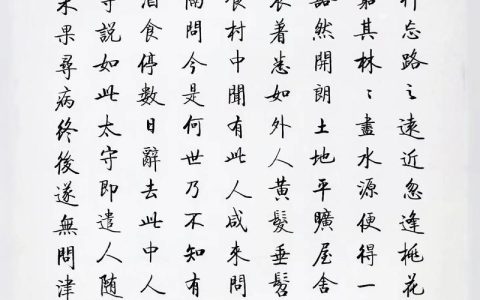 行忘路之遠近忽逢桃花
窮其林〻盡水源便得一
豁然開朗土地平曠屋舍
衣着悉如外人黃髮垂髫
食村中聞有此人咸來問
隔問今是何世乃不知有
酒食停數日辭去此中人
守說如此太守即遣人隨
未果尋病終後遂無問津